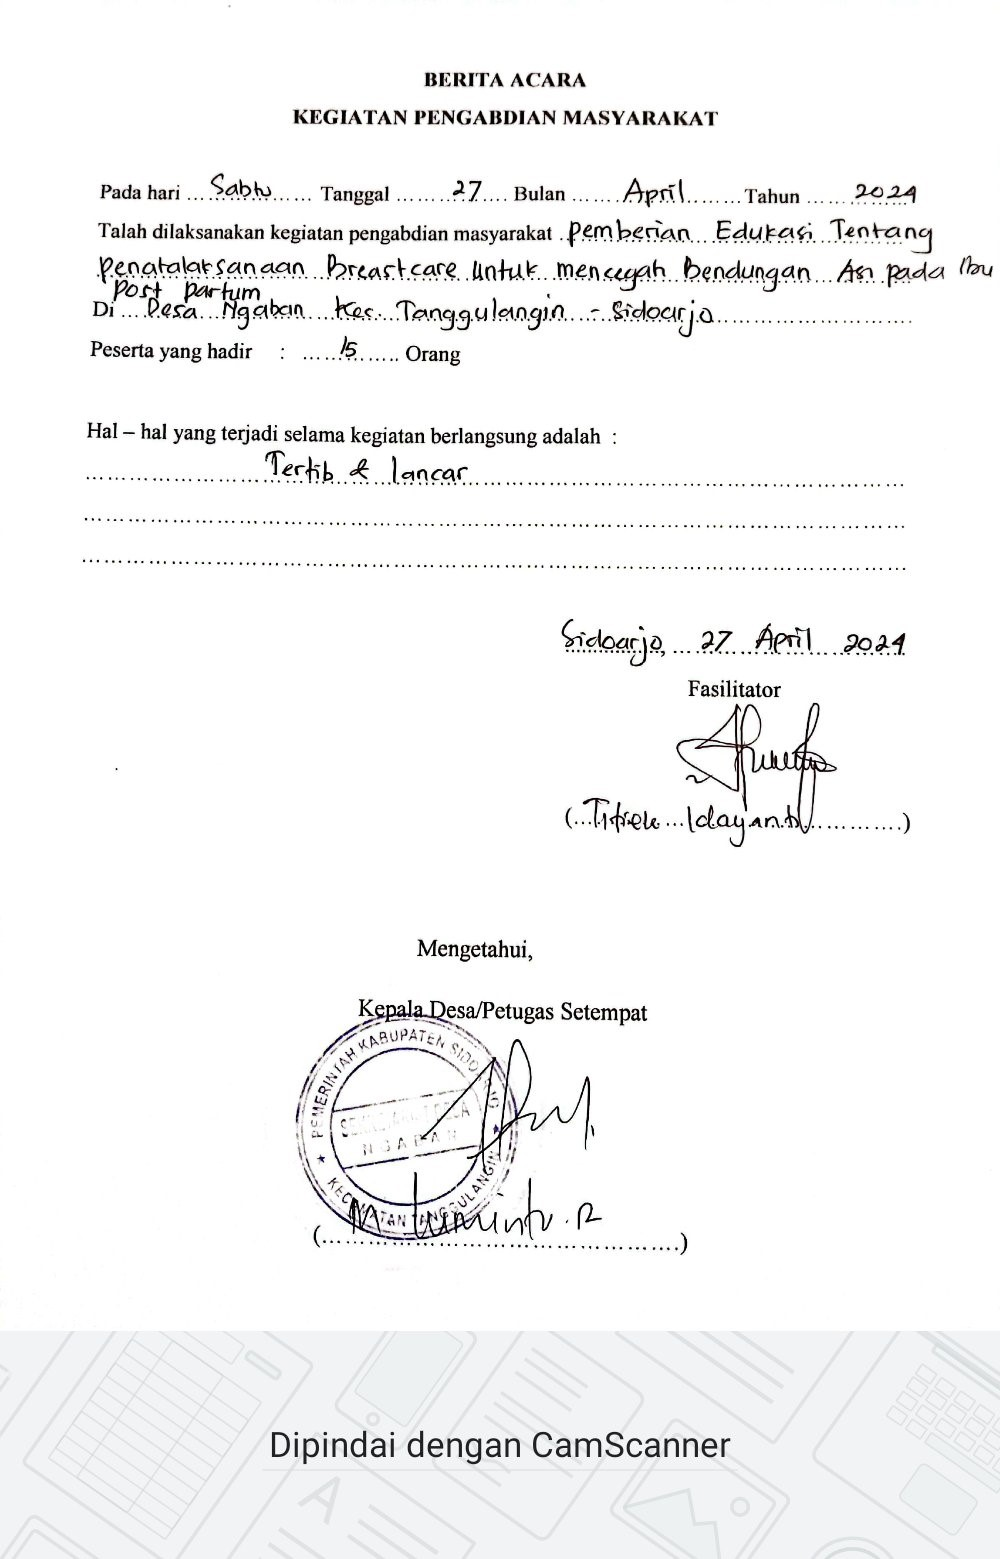 BERITA ACARA
KEGIATAN PENGABDIAN MASYARAKAT
Pada hari ... Sabtu ...... Tanggal ......... 27 .... Bulan ...... April ........ Tahun ...... 2024
Talah dilaksanakan kegiatan pengabdian masyarakat . pemberian Edukasi Tentang
penatalaksanaan Breastcare untuk mencegah Bendungan Asi pada Ibu
Post partum
Di ... Desa Ngaban Kec. Tanggulangin - Sidoarjo ..............................
Peserta yang hadir : ...... 15 ....... Orang
Hal – hal yang terjadi selama kegiatan berlangsung adalah :
Tertib & lancar
Sidoarjo, ... 27 April 2024
Fasilitator
(... Titiek Idayanti ............)
Mengetahui,
Kepala Desa/Petugas Setempat
PEMERINTAH KABUPATEN SIDOARJO
SEKRETARIS DESA
NGABAN
KECAMATAN TANGGULANGIN
Dipindai dengan CamScanner